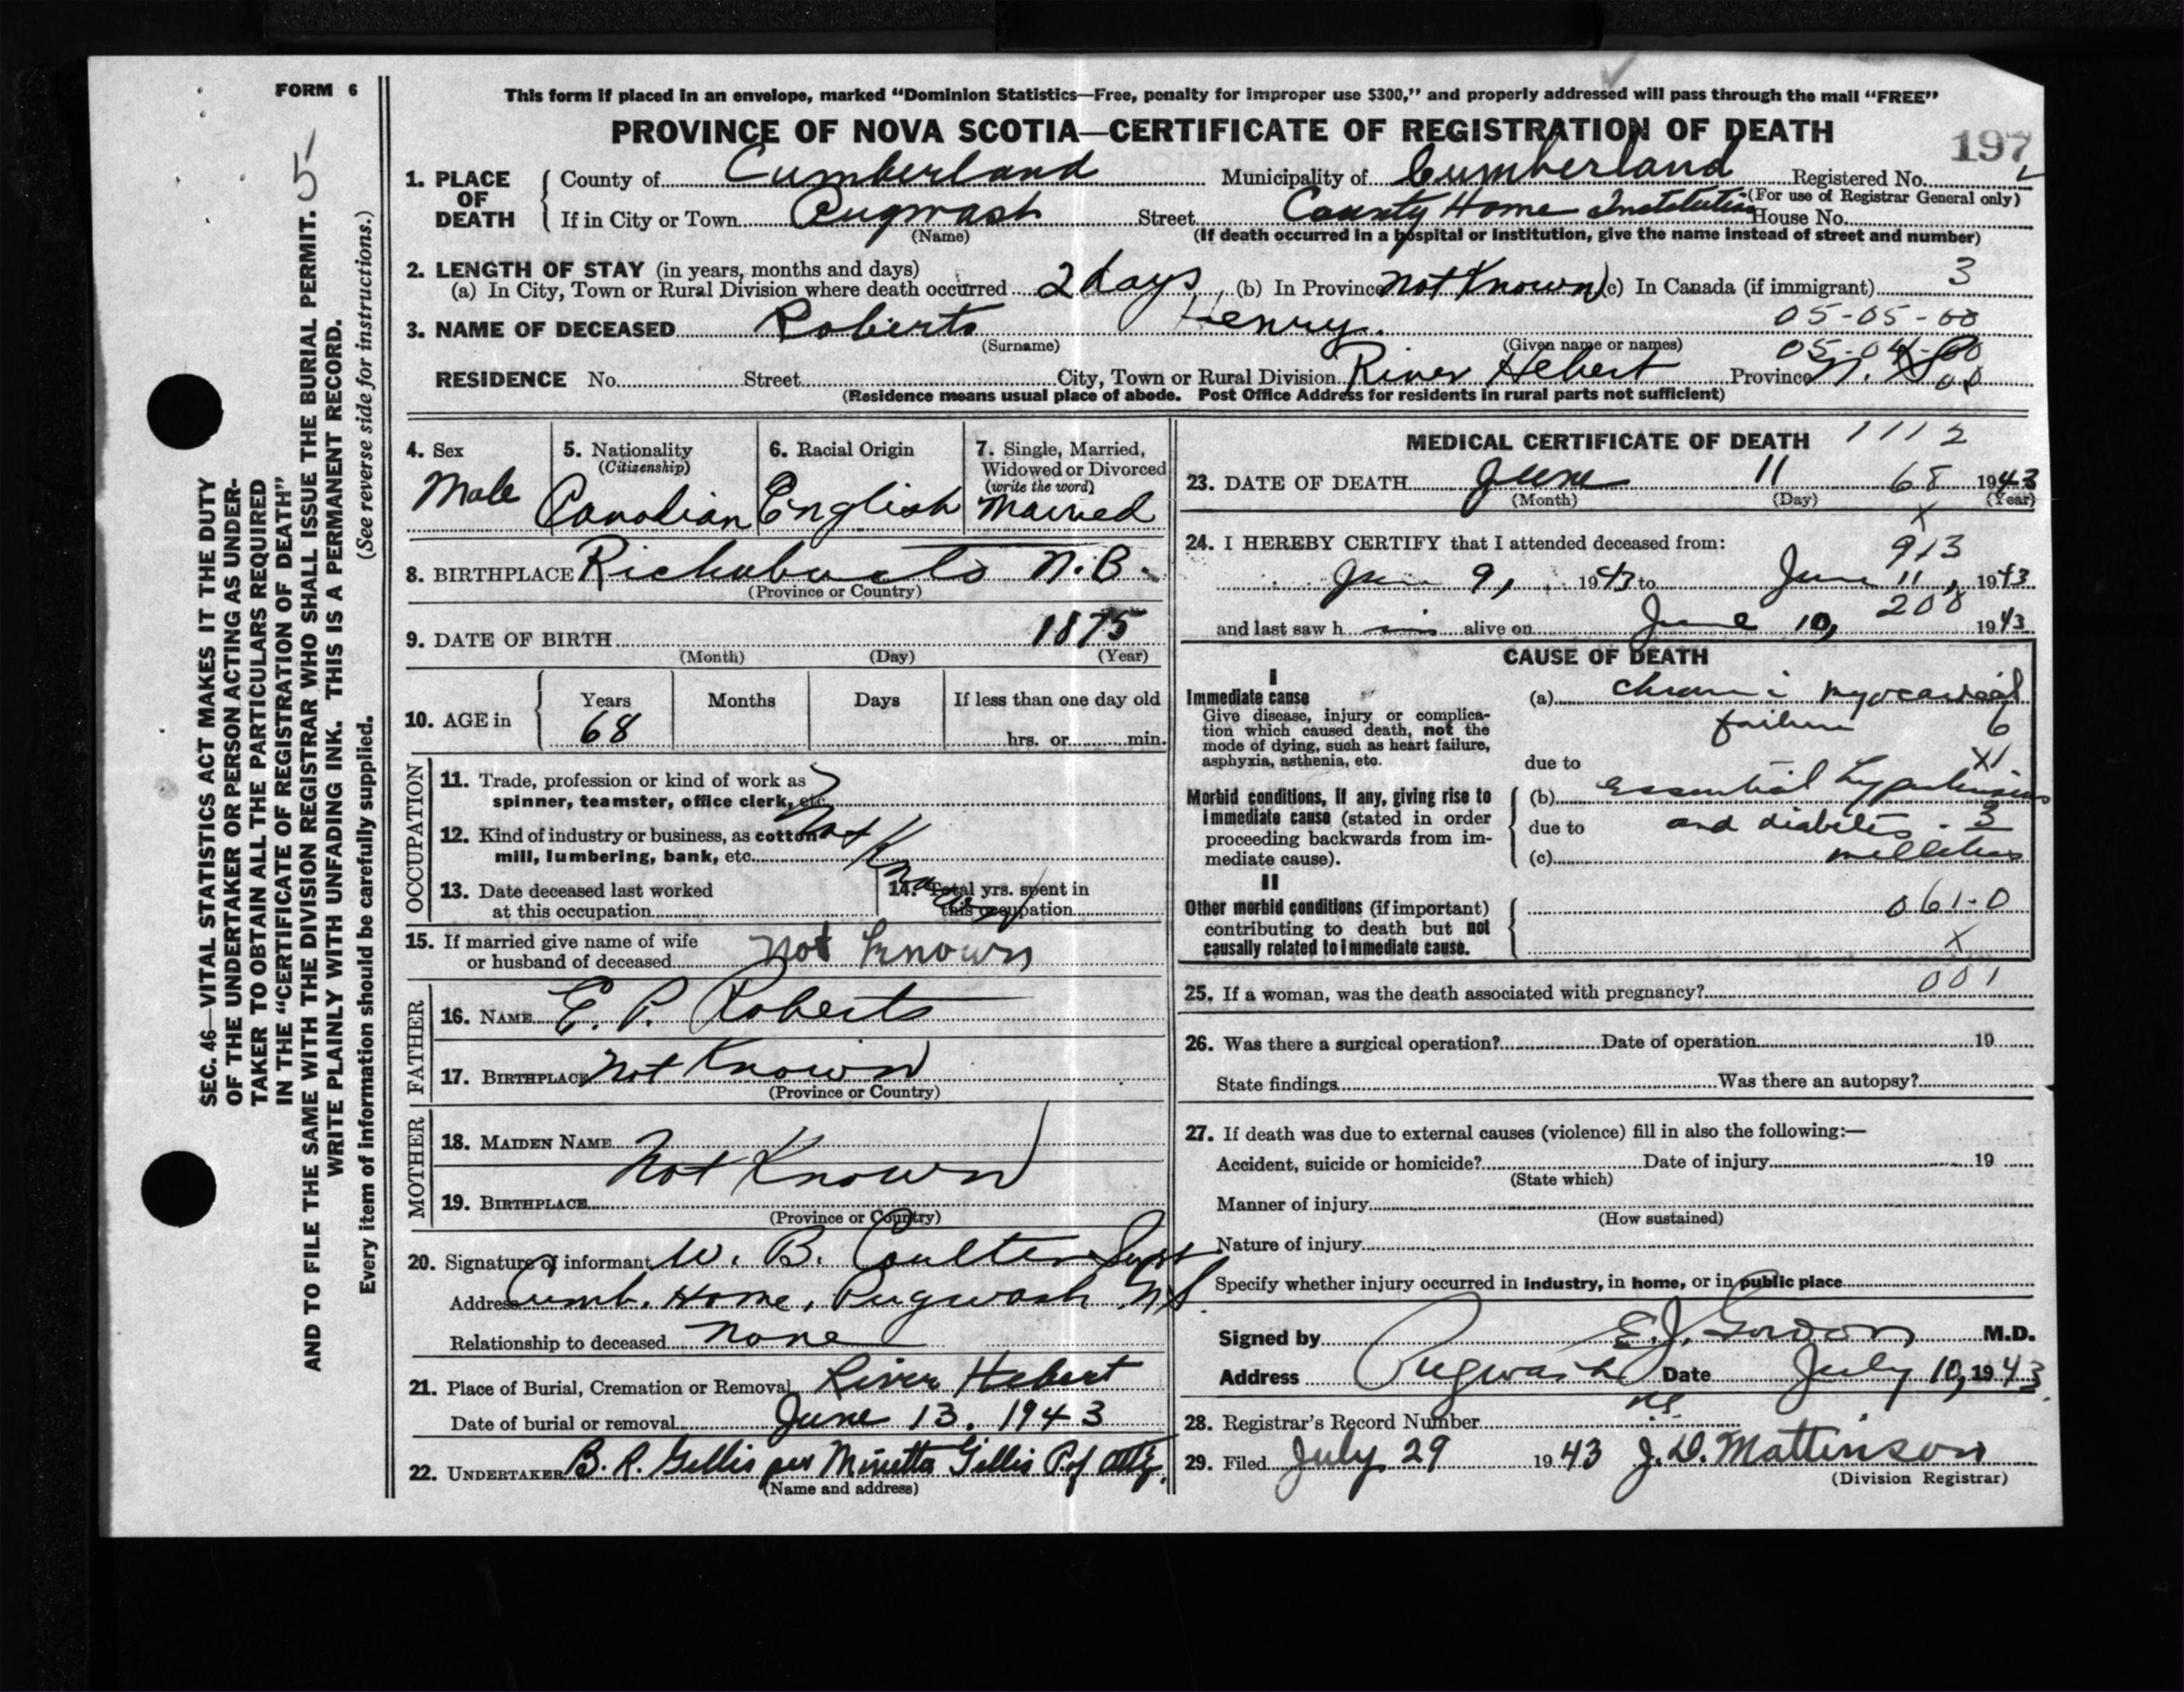 FORM 6
5
This form if placed in an envelope, marked "Dominion Statistics—Free, penalty for improper use $300," and properly addressed will pass through the mail "FREE"
PROVINCE OF NOVA SCOTIA—CERTIFICATE OF REGISTRATION OF DEATH
197
1. PLACE OF DEATH
County of Cumberland Municipality of Cumberland Registered No.
(For use of Registrar General only)
If in City or Town Pugwash Street County Home Institution House No.
(Name) (If death occurred in a hospital or institution, give the name instead of street and number)
2. LENGTH OF STAY (in years, months and days)
(a) In City, Town or Rural Division where death occurred 2 days (b) In Province not Known (c) In Canada (if immigrant) 3
05-05-00
3. NAME OF DECEASED Roberts Henry.
(Surname) (Given name or names)
05-04-00
RESIDENCE No. Street City, Town or Rural Division River Hebert Province N.S.
(Residence means usual place of abode. Post Office Address for residents in rural parts not sufficient)
4. Sex
Male
5. Nationality
(Citizenship)
Canadian
6. Racial Origin
English
7. Single, Married,
Widowed or Divorced
(write the word)
Married
8. BIRTHPLACE Richubucto N.B.
(Province or Country)
9. DATE OF BIRTH 1875
(Month) (Day) (Year)
10. AGE in
Years Months Days If less than one day old
68 hrs. or min.
OCCUPATION
11. Trade, profession or kind of work as
spinner, teamster, office clerk, etc.
12. Kind of industry or business, as cotton
mill, lumbering, bank, etc.
Not Known
13. Date deceased last worked
at this occupation
14. Total yrs. spent in
this occupation
15. If married give name of wife
or husband of deceased not known
FATHER
16. NAME E. P. Roberts
17. BIRTHPLACE Not Known
(Province or Country)
MOTHER
18. MAIDEN NAME
Not Known
19. BIRTHPLACE
(Province or Country)
20. Signature of informant W. B. Coulter Supt
Address Cumb. Home, Pugwash NS
Relationship to deceased none
21. Place of Burial, Cremation or Removal River Hebert
Date of burial or removal June 13, 1943
22. UNDERTAKER B. R. Gillis per Minetta Gillis P of Atty.
(Name and address)
MEDICAL CERTIFICATE OF DEATH 1112
23. DATE OF DEATH June 11 68 1943
(Month) (Day) (Year)
x
24. I HEREBY CERTIFY that I attended deceased from:
913
June 9, 1943 to June 11, 1943
200
and last saw him alive on June 10, 1943
CAUSE OF DEATH
I
Immediate cause
Give disease, injury or complication which caused death, not the mode of dying, such as heart failure, asphyxia, asthenia, etc.
(a) chronic myocardial
failure 6
X1
due to
Morbid conditions, if any, giving rise to immediate cause (stated in order proceeding backwards from immediate cause).
(b) essential hypertension
due to and diabetes - 3
(c) mellitus
II
Other morbid conditions (if important) contributing to death but not causally related to immediate cause.
061-0
X
25. If a woman, was the death associated with pregnancy? 001
26. Was there a surgical operation? Date of operation 19
State findings Was there an autopsy?
27. If death was due to external causes (violence) fill in also the following:—
Accident, suicide or homicide? Date of injury 19
(State which)
Manner of injury
(How sustained)
Nature of injury
Specify whether injury occurred in industry, in home, or in public place
Signed by E. J. Gordon M.D.
Address Pugwash NS Date July 10, 1943.
28. Registrar's Record Number
29. Filed July 29 1943 J. D. Mattinson
(Division Registrar)
SEC. 46—VITAL STATISTICS ACT MAKES IT THE DUTY
OF THE UNDERTAKER OR PERSON ACTING AS UNDER-
TAKER TO OBTAIN ALL THE PARTICULARS REQUIRED
IN THE "CERTIFICATE OF REGISTRATION OF DEATH"
AND TO FILE THE SAME WITH THE DIVISION REGISTRAR WHO SHALL ISSUE THE BURIAL PERMIT.
WRITE PLAINLY WITH UNFADING INK. THIS IS A PERMANENT RECORD.
Every item of information should be carefully supplied. (See reverse side for instructions.)